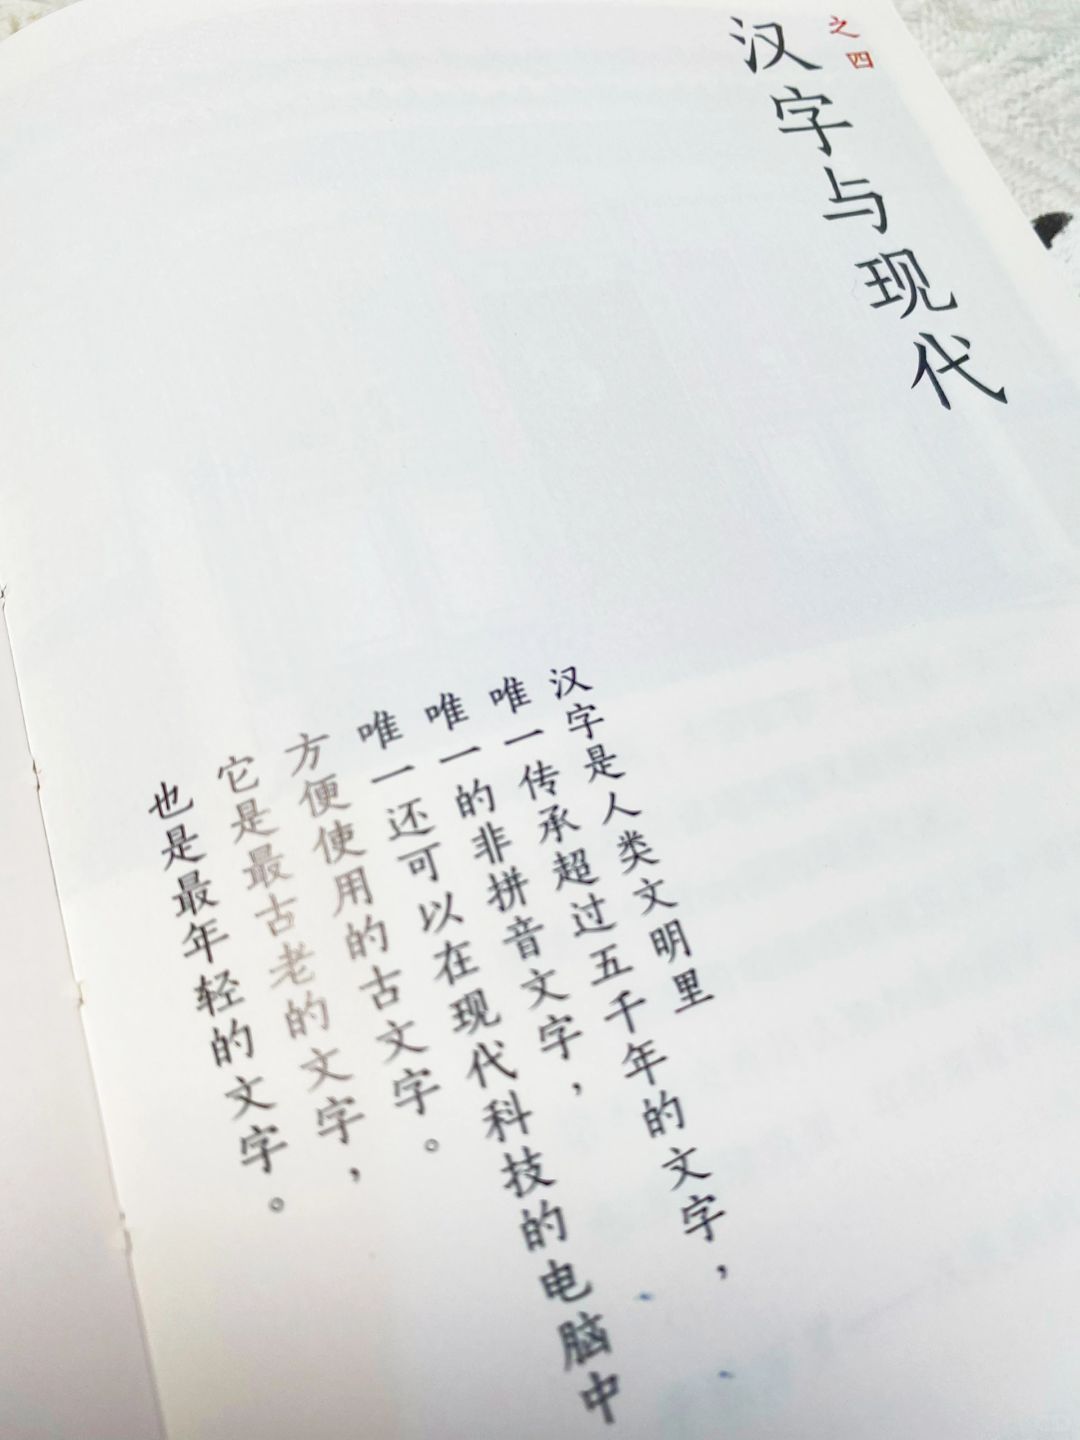 之四
汉字与现代
汉字是人类文明里
唯一传承超过五千年的文字，
唯一的非拼音文字，
唯一还可以在现代科技的电脑中
方便使用的古文字。
它是最古老的文字，
也是最年轻的文字。